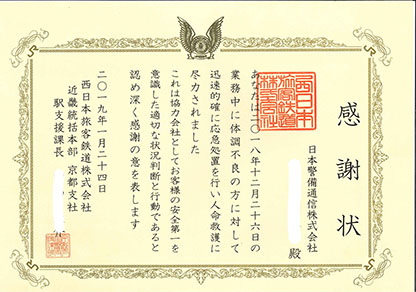 感謝状
日本警備通信株式会社
殿
あなたは二〇一八年十二月二十六日の
業務中に体調不良の方に対して
迅速的確に応急処置を行い人命救護に
尽力されました
これは協力会社としてお客様の安全第一を
意識した適切な状況判断と行動であると
認め深く感謝の意を表します
二〇一九年一月二十四日
西日本旅客鉄道株式会社
近畿統括本部 京都支社
駅支援課長
西日本
旅客鉄道
株式会社